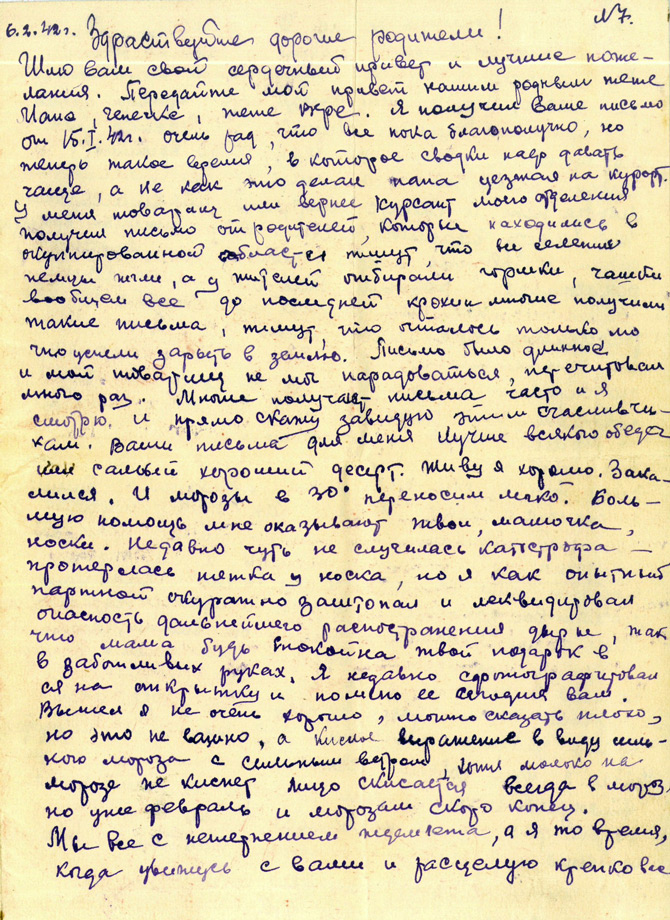 6.2.42г. Здраствуйте дорогие родители! N 7.
Шлю вам свой сердечный привет и лучшие поже-
лания. Передайте мой привет нашим родным тете
тете Вере. Я получил Ваше письмо
от 15.I.42г. очень рад, что все пока благополучно, но
теперь такое время, в которое сводки надо давать
чаще, а не как это делал папа уезжая на курорт.
У меня товарищ или вернее курсант моего отделения
получил письмо от родителей, которые находились в
оккупированной области пишут, что все селения
немцы жгли, а у жителей отбирали горшки, чашки
вообщем все до последней крохи многие получили
такие письма, пишут, что осталось только то
что успели зарыть в землю. Письмо было длинное
и мой товарищ не мог нарадоваться, перечитовал
много раз. Многие получают письма часто и я
смотрю и прямо скажу завидую этим счастливчи-
кам. Ваши письма для меня лучше всякого обеда
как самый хороший десерт. Живу я хорошо. Зака-
лился. И морозы в 30° переносим легко. Боль-
шую помощь мне оказывают твои, мамочка,
носки. Недавно чуть не случилась катострофа –
протерлась пятка у носка, но я как опытный
партной окуратно заштопал и леквидировал
опасность дальнейшего распостранения дыры, так
что мама будь спокойна твой подарок в
в заботливых руках. Я недавно сфотографировал
ся на открытку и пошлю ее сегодня вам.
Вышел я не очень хорошо, можно сказать плохо,
но это не важно, а кислое выражение в виду силь-
ного мороза с сильным ветром, хотя молоко на
морозе не киснет лицо скисается всегда в мороз,
но уже февраль и морозам скоро конец.
Мы все с нетерпением ждем лета, а я то время,
когда увижусь с вами и расцелую крепко все